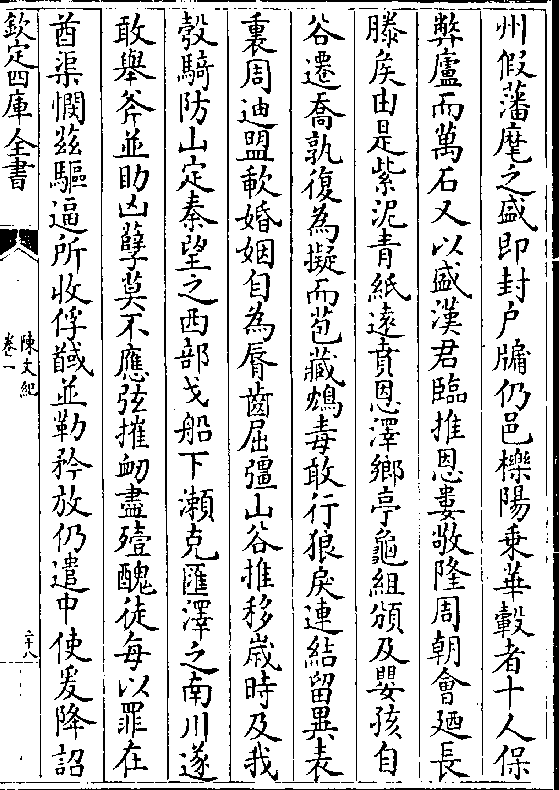 州假藩麾之盛即封户牖仍邑櫟陽乗華轂者十人保
弊廬而萬石又以盛漢君臨推恩婁敬隆周朝會廼長
滕矦由是紫泥青紙逺賁恩澤鄉亭龜組頒及嬰孩自
谷遷喬孰復為擬而苞藏鴆毒敢行狼戾連結留異表
裏周迪盟㰱婚姻自為脣齒屈彊山谷推移歳時及我
彀騎防山定秦望之西部戈船下瀬克匯澤之南川遂
敢舉斧並助凶孽莫不應弦摧衂盡殪醜徒每以罪在
酋渠憫兹驅逼所收俘馘並勒矜放仍遣中使爰降詔
欽定四庫全書
陳文紀
卷一
三十八